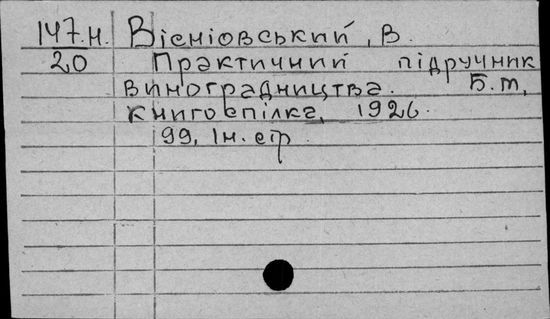 147.н. Вісніовський, В.
20 Практичний підручник
виноградництва. Б.т,
книгоспілка, 1926.
99, Ін. стр.